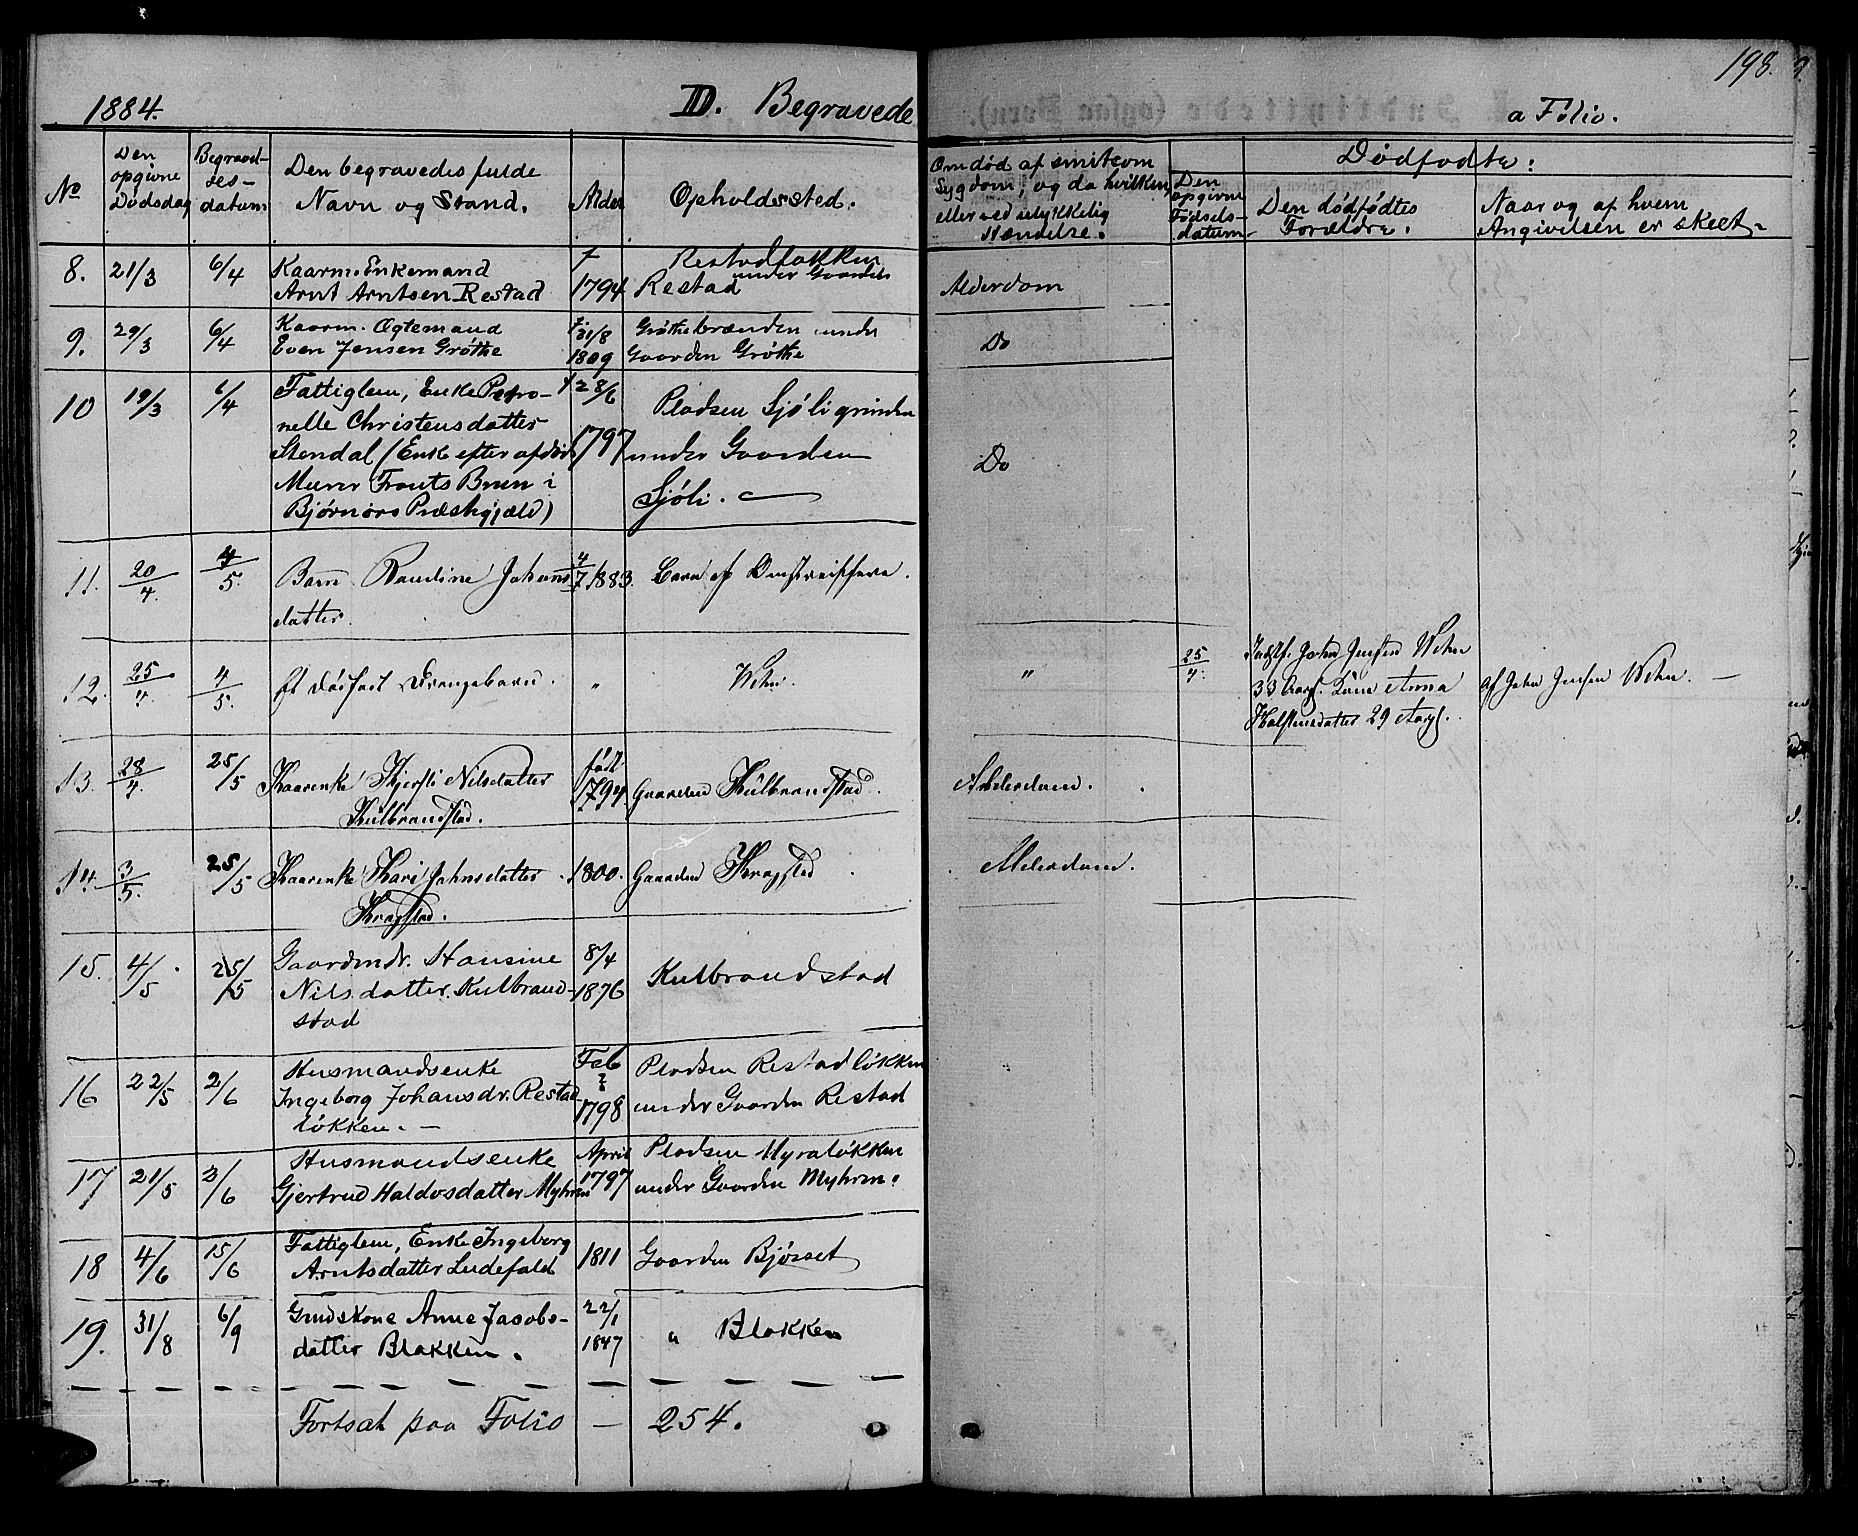 1884.
D. Begravede
a Folio.
198.
No
Den opgivne Dødsdag
Begravelsesdatum
Den begravedes fulde Navn og Stand.
Alder
Opholdssted.
Om død af smitsom Sygdom, og da hvilken, eller ved ulykkelig Hændelse.
Dødfødte:
Den opgivne Fødselsdatum
Den dødfødtes Forældre.
Naar og af hvem Angivelsen er skeet.
8. 21/3 6/4 Kaarm. Enkemand f Restadløkken
Arnt Arntsen Restad 1794 Restad under Gaarden Alderdom
9. 29/3 6/4 Kaarm. Ægtemand f. 21/8 Grøthebrænden under
Even Jensen Grøthe 1809 Gaarden Grøthe Do
10 19/3 6/4 Fattiglem, Enke Petro- f 28/6 Pladsen Sjøligrinden
nelle Christensdatter 1797 under Gaarden
Stendal (Enke efter afdød Do
Murer Frants Bruun i Sjøli.
Bjørnørs Præstegjæld)
11. 20/4. 4/5. Barn Pauline Johans 4/7 1883. Barn af Omstreifere.
datter.
12. 25/4. 4/5. Et dødfødt Drengebarn. " Wehn. " 25/4. John Jensen Wehn
33 Aar. Anna af John Jensen Wehn.
Halstensdatter 29 Aar.
13. 28/4. 25/5 Kaarenke Kjersti Nilsdatter født 1794 Gaarden Kulbrandstad. Alderdom.
Kulbrandstad.
14. 3/5. 25/5 Kaarenke Kari Johnsdatter 1800. Gaarden Kragstad Alderdom.
Kragstad.
15. 4/5 25/5 Gaardmdr. Hansine 8/4
Nilsdatter Kulbrand- 1876 Kulbrandstad
stad
16 22/5 2/6 Husmandsenke Feb Pladsen Restadløkken
Ingeborg Johansdr. Restad ? under Gaarden Restad
løkken. 1798
17 21/5 2/6 Husmandsenke April Pladsen Myraløkken
Gjertrud Haldosdatter Myhren 1797 under Gaarden Myhren.
18 4/6 15/6 Fattiglem, Enke Ingeborg 1811 Gaarden Bjørset
Arntsdatter Ludefald
19. 31/8 6/9 Grudskone Anne Jacobs- 22/1
datter Blakken. 1847 " Blokken
Fortsat paa Folio — 254.